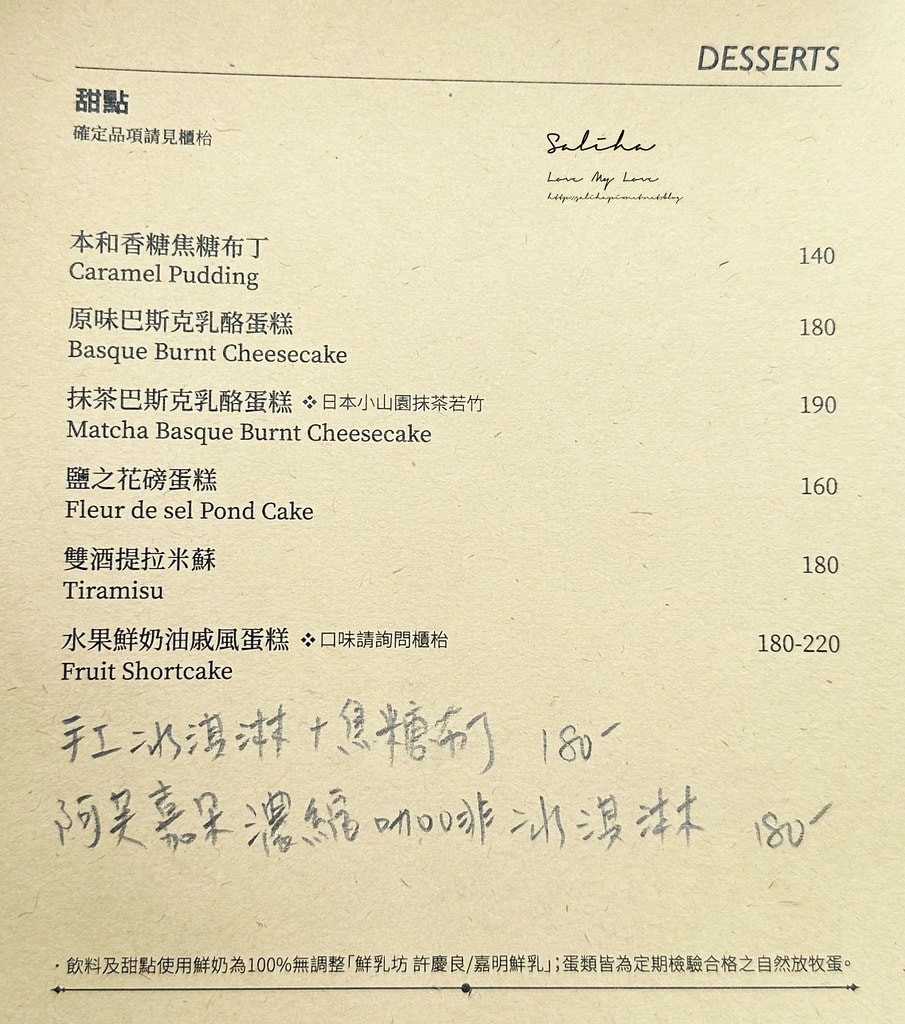 DESSERTS
甜點
確定品項請見櫃枱
Saliha
Love My Love
本和香糖焦糖布丁
140
Caramel Pudding
原味巴斯克乳酪蛋糕
180
Basque Burnt Cheesecake
抹茶巴斯克乳酪蛋糕 ❖日本小山園抹茶若竹
190
Matcha Basque Burnt Cheesecake
鹽之花磅蛋糕
160
Fleur de sel Pond Cake
雙酒提拉米蘇
180
Tiramisu
水果鮮奶油戚風蛋糕 ❖口味請詢問櫃枱
180-220
Fruit Shortcake
手工冰淇淋+焦糖布丁 180
阿芙嘉朵 濃縮咖啡冰淇淋 180
·飲料及甜點使用鮮奶為100%無調整「鮮乳坊 許慶良/嘉明鮮乳」;蛋類皆為定期檢驗合格之自然放牧蛋。